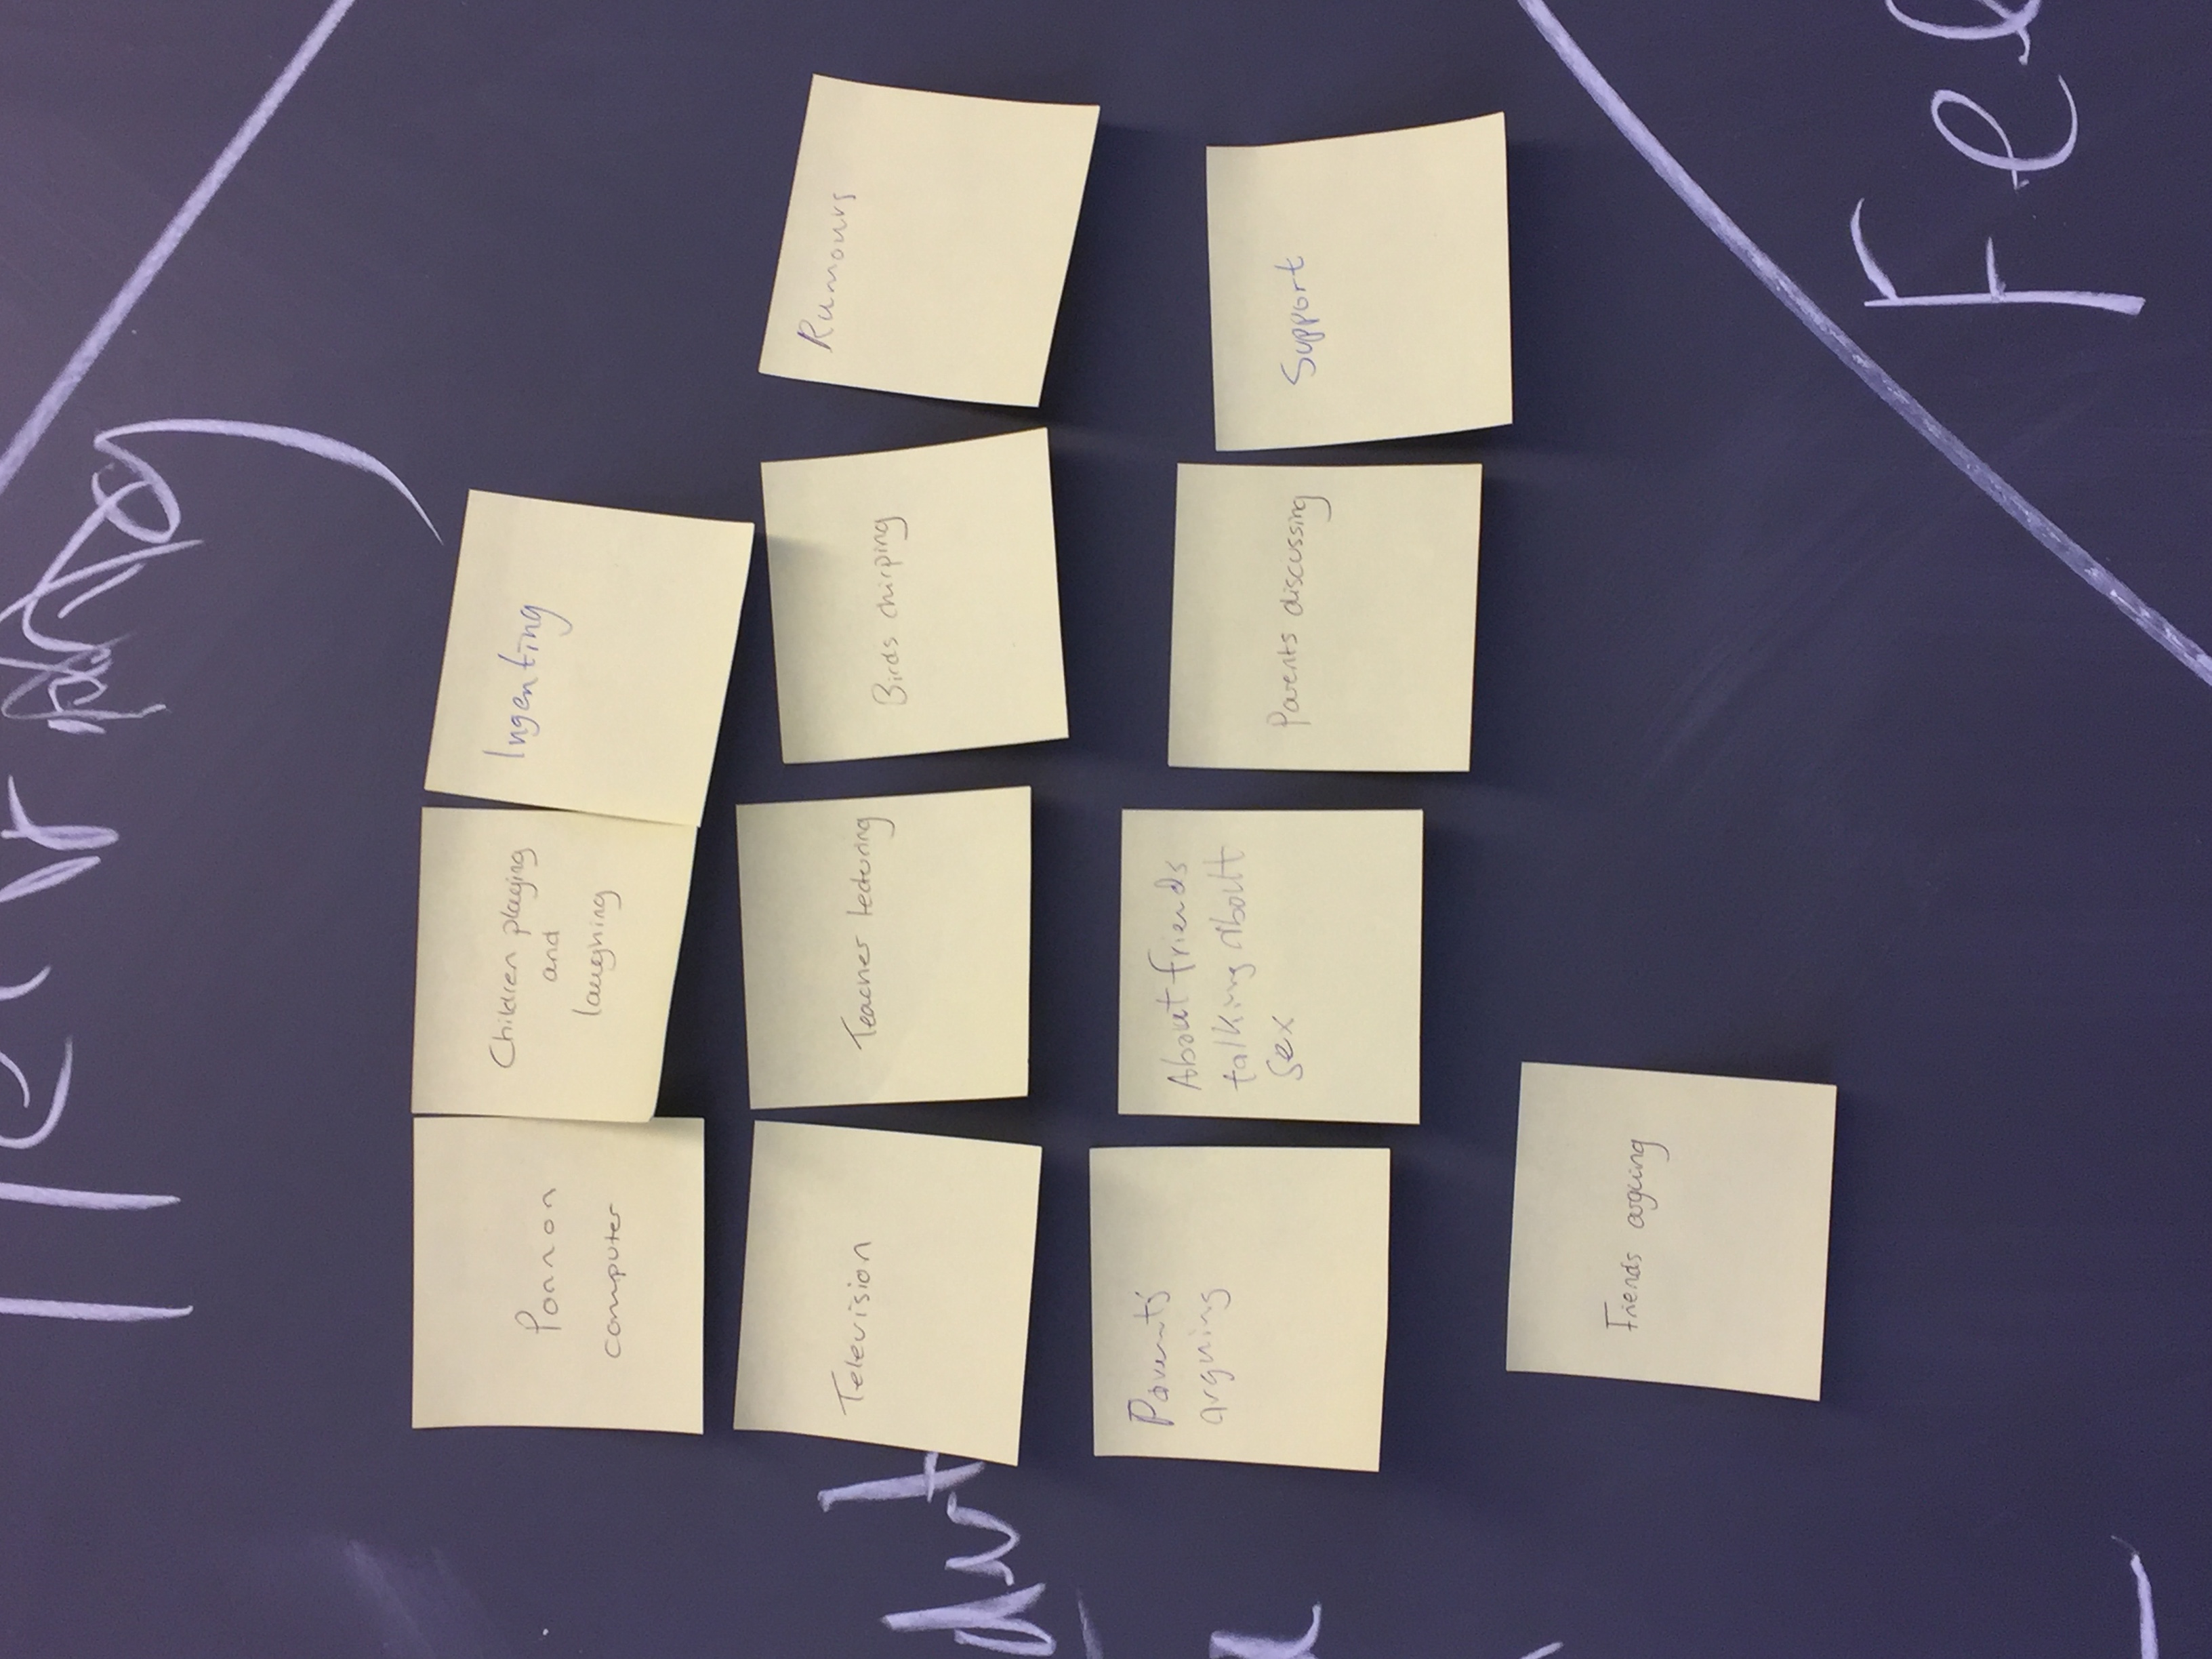 Ponnon
computer
Children playing
and
laughing
Ingenting
Television
Teacher lecturing
Birds chirping
Rumours
Parents
arguing
About friends
talking about
sex
Parents discussing
Support
Friends arguing